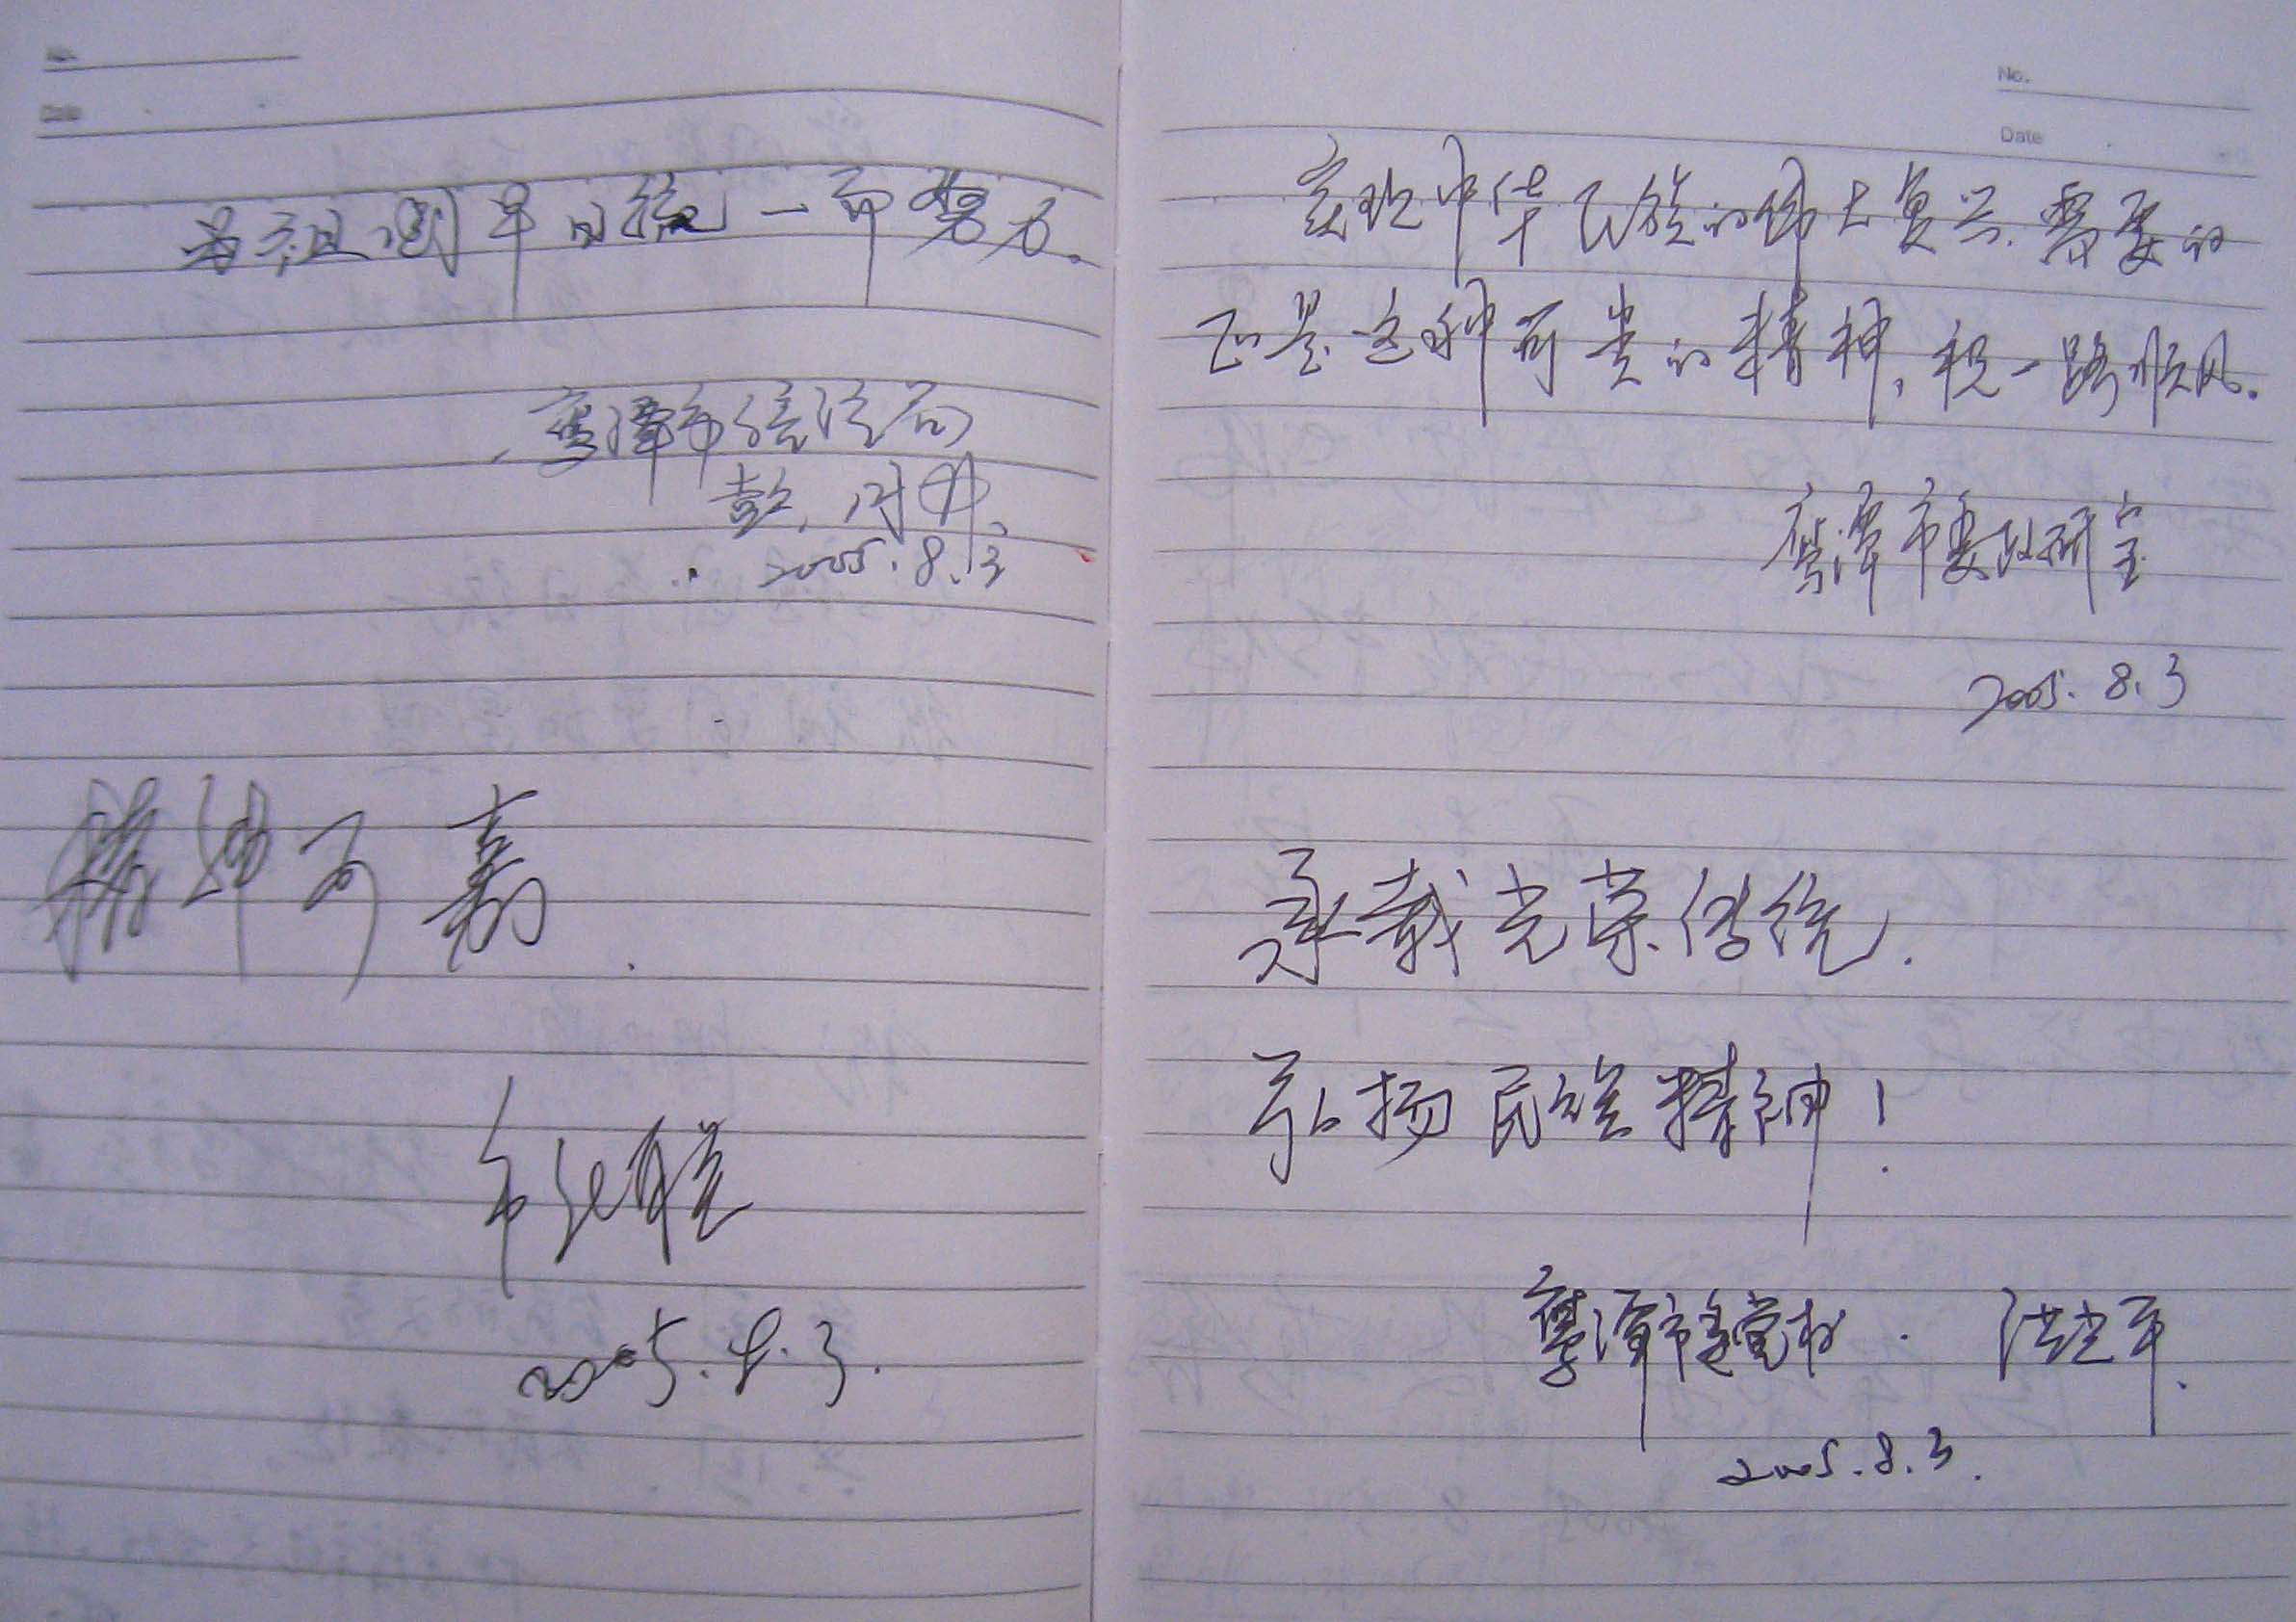 为祖国早日统一而努力。
鹰潭市信访局
彭
2005.8.3
精神可嘉.
2005.8.3.
No.
Date
实现中华民族的伟大复兴,需要的
正是这种可贵的精神,祝一路顺风.
鹰潭市委政研室
2005.8.3
承载光荣传统.
弘扬民族精神!
鹰潭市委党校.洪 平.
2005.8.3.